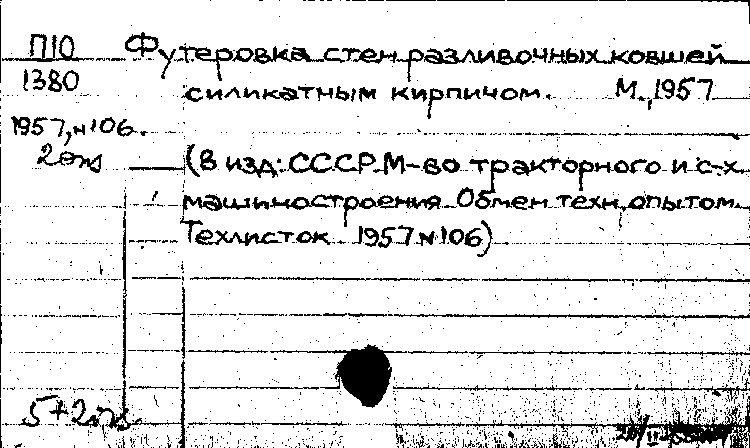 П10
1380
1957, №106.
2 экз
Футеровка стен разливочных ковшей
силикатным кирпичом. М., 1957
(В изд: СССР. М-во тракторного и с-х
машиностроения. Обмен техн. опытом.
Техлисток. 1957 №106)
5+2 экз.